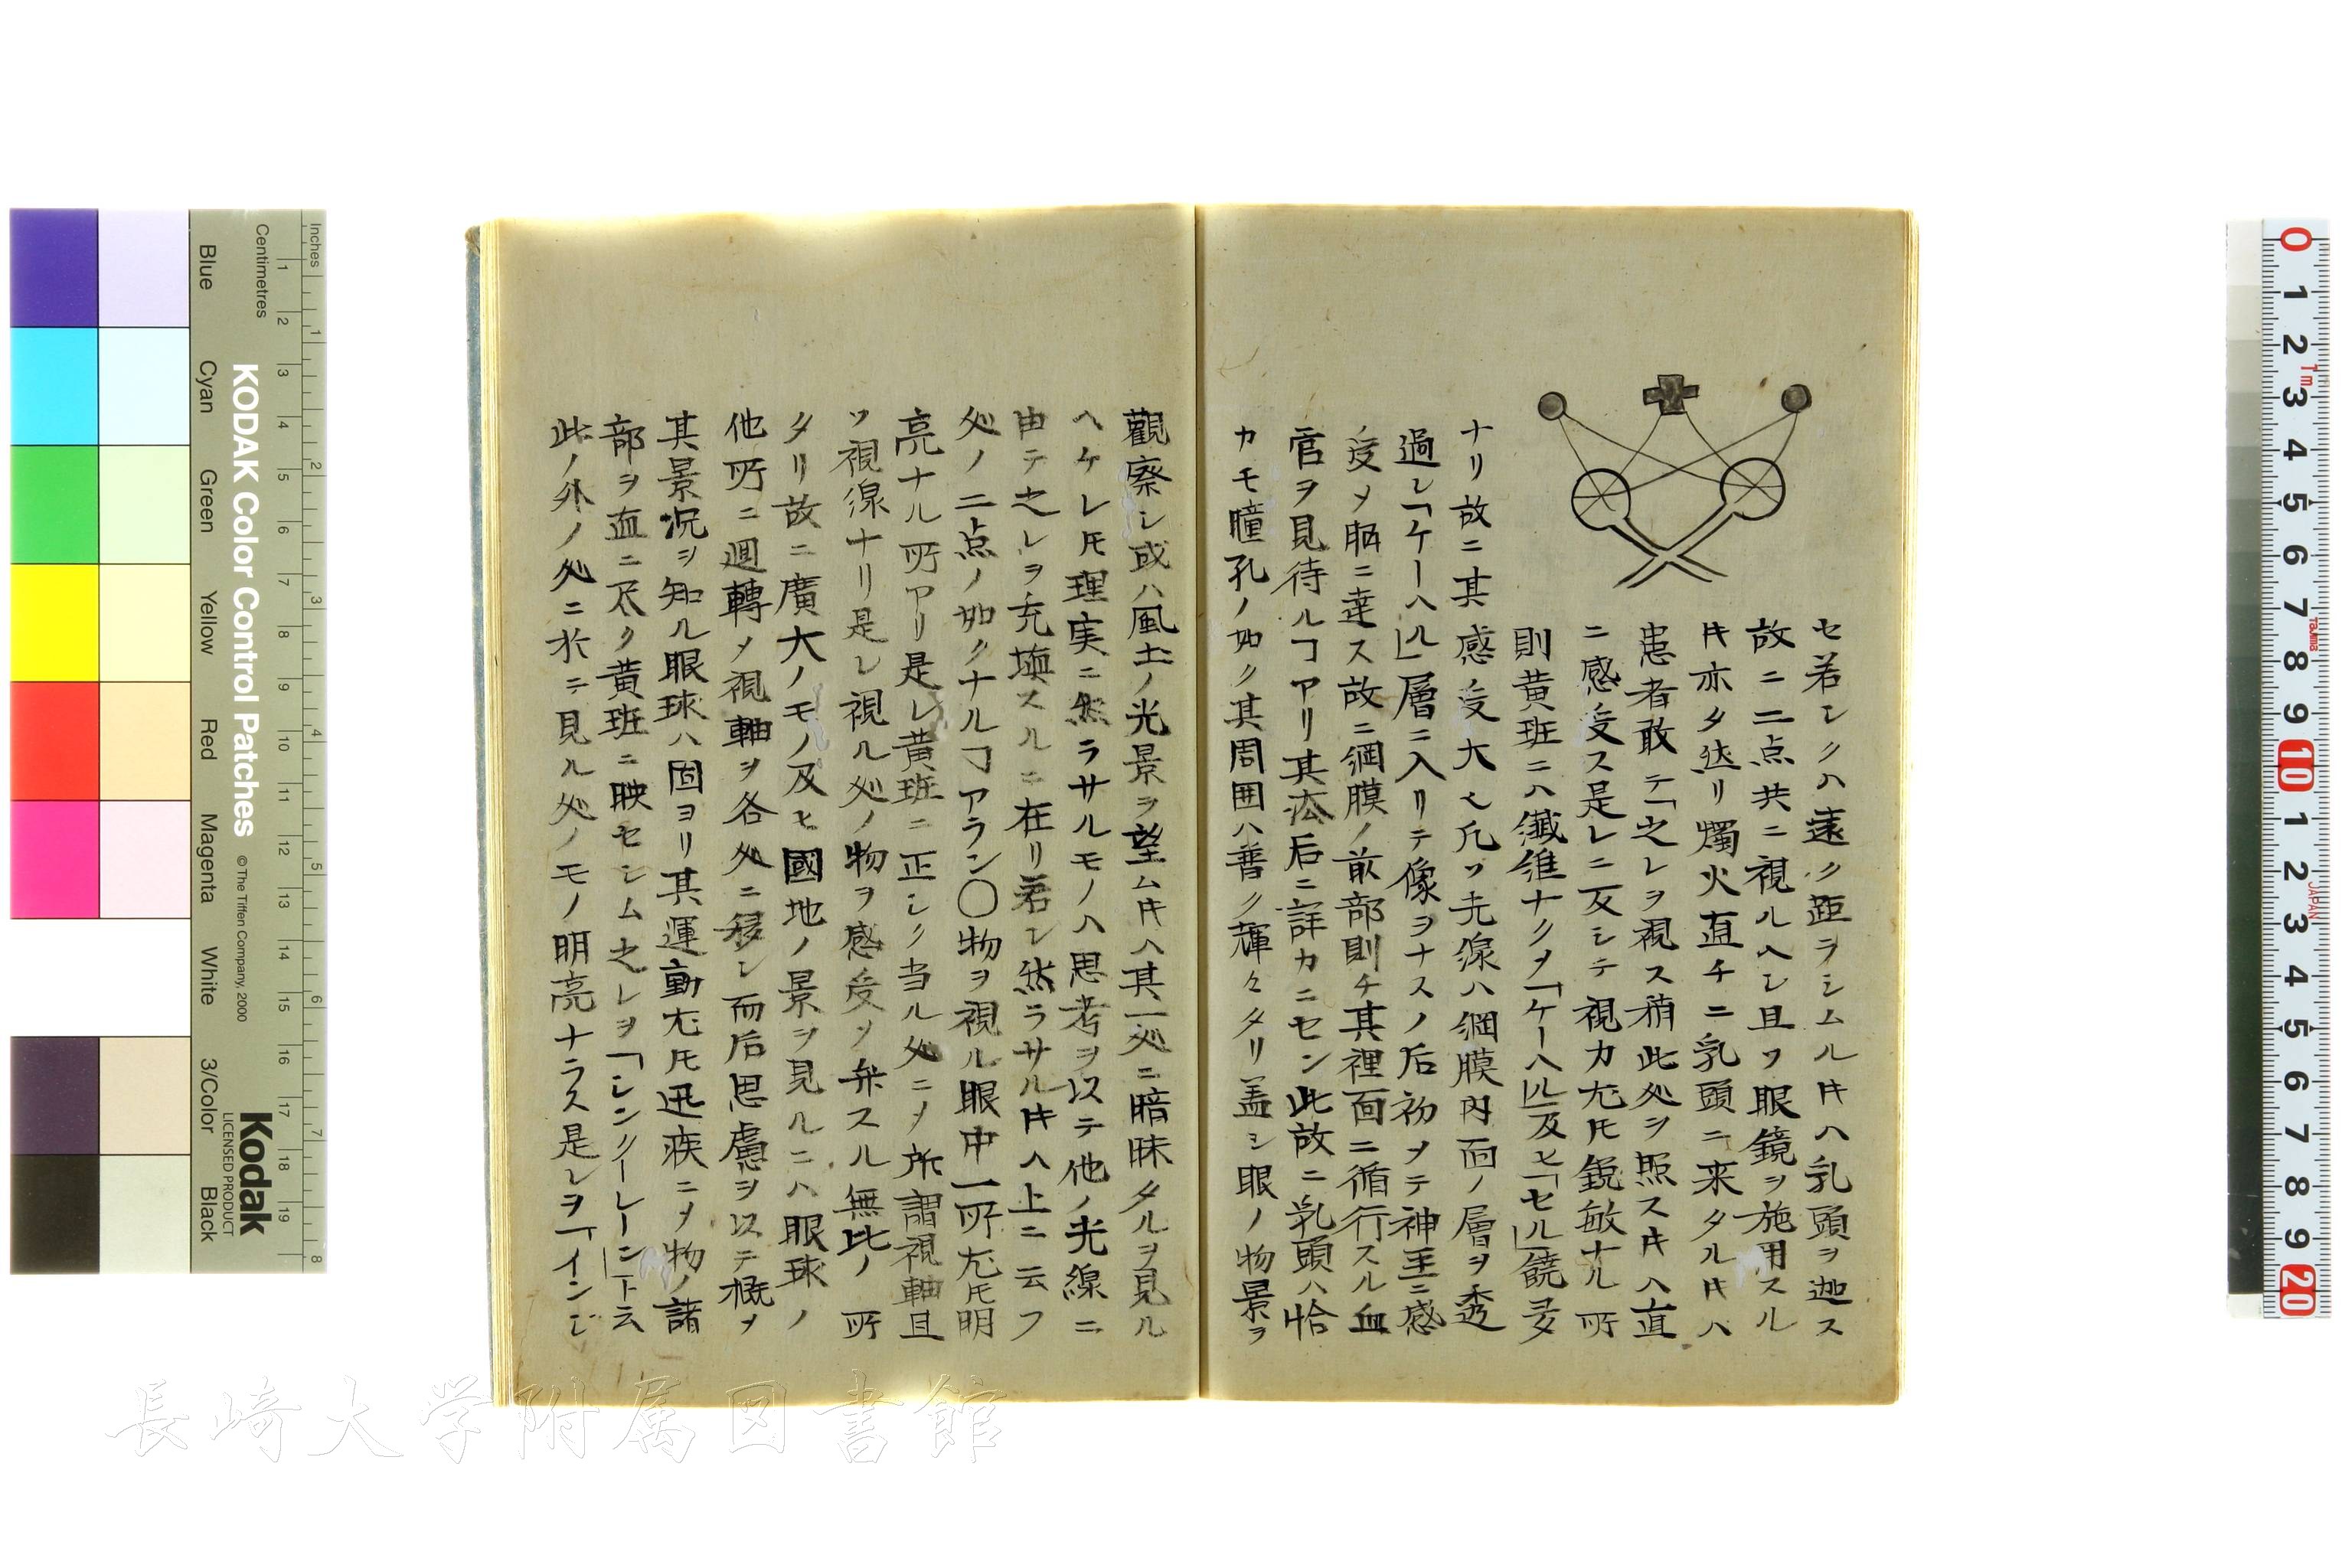 セ若シクハ遠ク距ラシムル𪜈ハ乳頭ヲ迦ス
故ニ二点共ニ視ルヘシ且ツ眼鏡ヲ施用スル
𪜈亦タ然リ燭火直チニ乳頭ニ来タル𪜈ハ
患者敢テ「之レヲ視ス稍此処ヲ照ス𪜈ハ直
ニ感受ス是レニ反シテ視力尤𪜈鋭敏ナル所
則黄斑ニハ纎維ナクメ「ケーヘル」及ヒ「セル」饒多
ナリ故ニ其感受大ヒ凡ソ光線ハ網膜内面ノ層ヲ透
過シ「ケーヘル」層ニ入リテ像ヲナスノ后初メテ神圣ニ感
受メ脳ニ達ス故ニ網膜ノ前部則チ其裡面ニ循行スル血
官ヲ見待ルヿアリ其法后ニ詳カニセン此故ニ乳頭ハ恰
カモ瞳孔ノ如ク其周囲ハ善ク輝々タリ盖シ眼ノ物景ヲ
觀察シ或ハ風土ノ光景ヲ望ム𪜈ハ其一処ニ暗昧タルヲ見ル
ヘケレ𪜈理実ニ然ラサルモノハ思考ヲ以テ他ノ光線ニ
由テ之レヲ充塡スルニ在リ若シ然ラサル𪜈ハ上ニ云フ
処ノ二点ノ如クナルヿアラン〇物ヲ視ル眼中一所尤𪜈明
亮ナル所アリ是レ黄斑ニ正シク当ル処ニメ所謂視軸且
ツ視線ナリ是レ視ル処ノ物ヲ感受メ弁スル無比ノ所
タリ故ニ廣大ノモノ及ヒ國地ノ景ヲ見ルニハ眼球ノ
他所ニ週轉メ視軸ヲ各処ニ移シ而后思慮ヲ以テ概メ
其景況ヲ知ル眼球ハ固ヨリ其運動尤𪜈迅疾ニメ物ノ諸
部ヲ直ニ尽ク黄斑ニ映セシム之レヲ「シンクーレーン」ト云
此ノ外ノ処ニ於テ見ル処ノモノ明亮ナラス是レヲ「インジ
Inches
Centimetres
KODAK Color Control Patches
© The Tiffen Company, 2000
Kodak
LICENSED PRODUCT
Blue
Cyan
Green
Yellow
Red
Magenta
White
3/Color
Black
長崎大学附属図書館